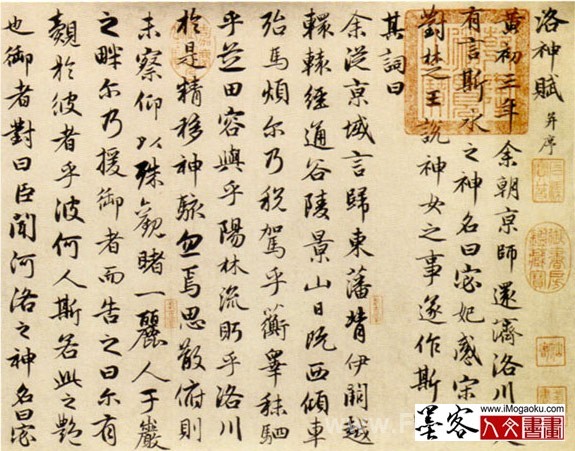 洛神賦 并序
黃初三年余朝京師還濟洛川
有言斯水之神名曰宓妃感宋
對楚王說神女之事遂作斯
其詞曰
余從京域言歸東藩背伊闕越
轘轅經通谷陵景山日既西傾車
殆馬煩尔乃稅駕乎蘅皋秣駟
乎芝田容與乎陽林流眄乎洛川
於是精移神駭忽焉思散俯則
未察仰以殊觀睹一麗人于巖
之畔尔乃援御者而告之曰尔有
覿於彼者乎彼何人斯若此之艷
也御者對曰臣聞河洛之神名曰宓
墨客
www.iMogaoku.com
人文書畫